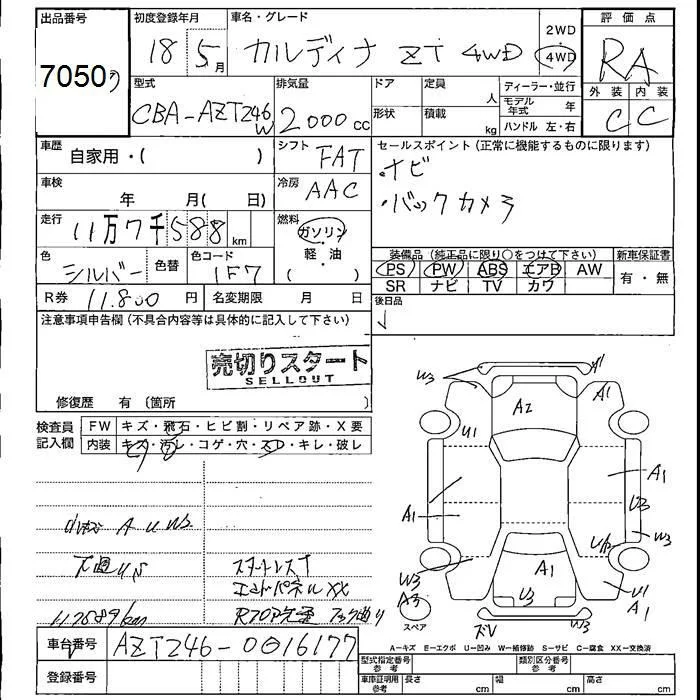 出品番号 初度登録年月 車名・グレード 評価点
7050 18 5月 カルディナ ZT 4WD 2WD 4WD RA
型式 排気量 ドア 定員 人 ディーラー・並行 外装 内装
CBA-AZT246W 2000cc 形状 積載 kg モデル年式 年 C C
ハンドル 左・右
車歴 自家用・( ) シフト FAT セールスポイント(正常に機能するものに限ります)
・ナビ
車検 年 月( 日) 冷房 AAC ・バックカメラ
走行 11万7千588km 燃料 ガソリン
軽・油
( )
色 シルバー 色替 色コード 1F7 装備品(純正品に限り○をつけて下さい) 新車保証書
PS PW ABS エアB AW 有・無
SR ナビ TV カワ
R券 11.800円 名変期限 月 日 後日品
注意事項申告欄(不具合内容等は具体的に記入して下さい)
売切りスタート
SELLOUT
修復歴 有(箇所 )
検査員記入欄 FW キズ・飛石・ヒビ割・リペア跡・X要
内装 キズ・汚レ・コゲ・穴・スレ・キレ・破レ
W3 A2 A1
U1 A1
A1 U3 W3
A U W2
W3 A1 U1
A3 U3 A1
スタートレス T
エンドパネル XX
スペア W3
車台番号 AZT246-0016177
A-キズ E-エクボ U-凹み W-補修跡 S-サビ C-腐食 XX-交換済
登録番号 型式指定番号 参考 類別区分番号 参考
車庫証明用 参考 長さ cm 幅 cm 高さ cm